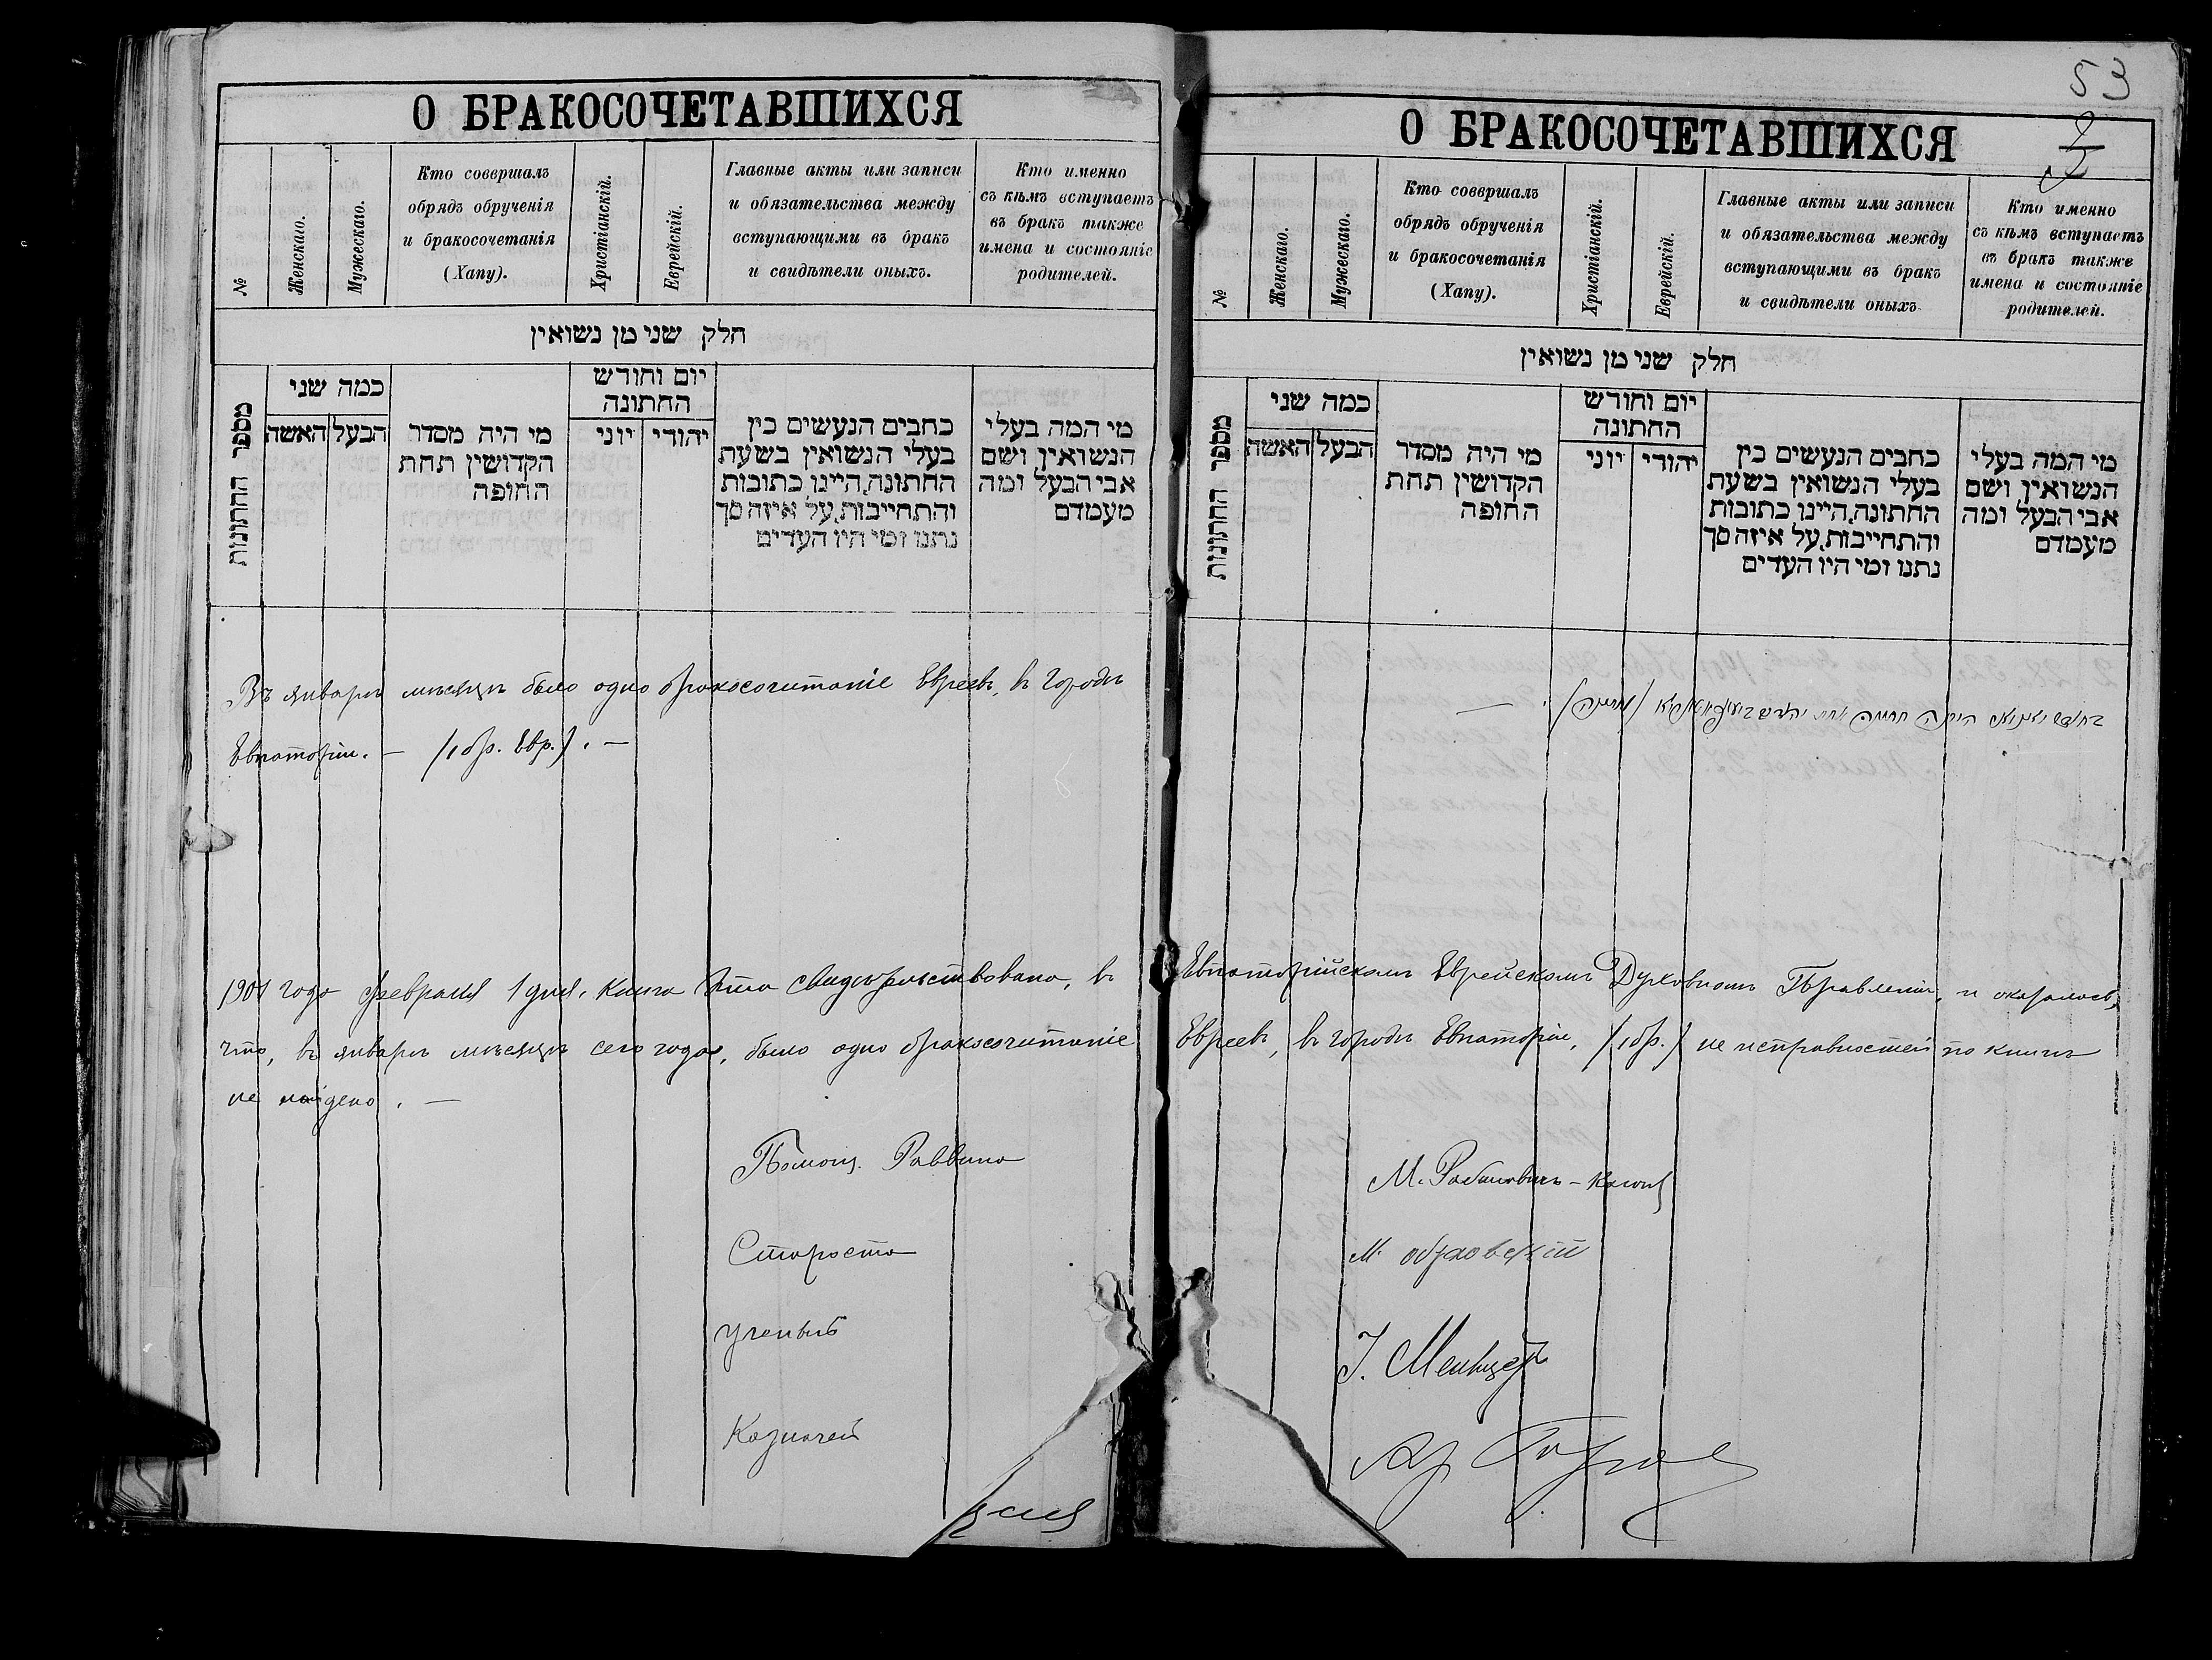 О БРАКОСОЧЕТАВШИХСЯ
№
Женскаго.
Мужескаго.
Кто соввршалъ
обрядъ обрученія
и бракосочетанія
(Хапу).
Христіанскій.
Еврейскій.
Главные акты или записи
и обязательства между
вступающими въ бракъ
и свидѣтели оныхъ.
Кто именно
съ кѣмъ вступаетъ
въ бракъ также
имена и состояніе
родителей.
חלק שני מן נשואין
מספר החתונות
כמה שני
האשה
הבעל
מי היה מסדר
הקדושין תחת
החופה
יום וחודש
החתונה
יוני
יהודי
כתבים הנעשים בין
בעלי הנשואין בשעת
החתונה, היינו כתובות
והתחייבות, על איזה סך
נתנו ומי היו העדים
מי המה בעלי
הנשואין ושם
אבי הבעל ומה
מעמדם
Въ январѣ мѣсяцѣ было одно бракосочитаніе Евреевъ, въ городѣ
Евпаторіи. — /1 бр. Евр./. —
1901 года февраля 1 дня, книга эта свидѣтельствована, въ
что, въ январѣ мѣсяцѣ сего года, было одно бракосочитаніе
не найдено. —
Помощ. Раввина
Староста
Ученый
Казначей
53
О БРАКОСОЧЕТАВШИХСЯ
№
Женскаго.
Мужескаго.
Кто соввршалъ
обрядъ обрученія
и бракосочетанія
(Хапу).
Христіанскій.
Еврейскій.
Главные акты или записи
и обязательства между
вступающими въ бракъ
и свидѣтели оныхъ
Кто именно
съ кѣмъ вступаетъ
въ бракъ также
имена и состояніе
родителей.
חלק שני מן נשואין
מספר החתונות
כמה שני
האשה
הבעל
מי היה מסדר
הקדושין תחת
החופה
יום וחודש
החתונה
יוני
יהודי
כתבים הנעשים בין
בעלי הנשואין בשעת
החתונה, היינו כתובות
והתחייבות, על איזה סך
נתנו ומי היו העדים
מי המה בעלי
הנשואין ושם
אבי הבעל ומה
מעמדם
Евпаторійскомъ Еврейскомъ Духовномъ Правленіи, и оказалось,
Евреевъ, въ городѣ Евпаторіи, /1 бр./ не исправностей по книгѣ
М. Рабиновичъ-
М.